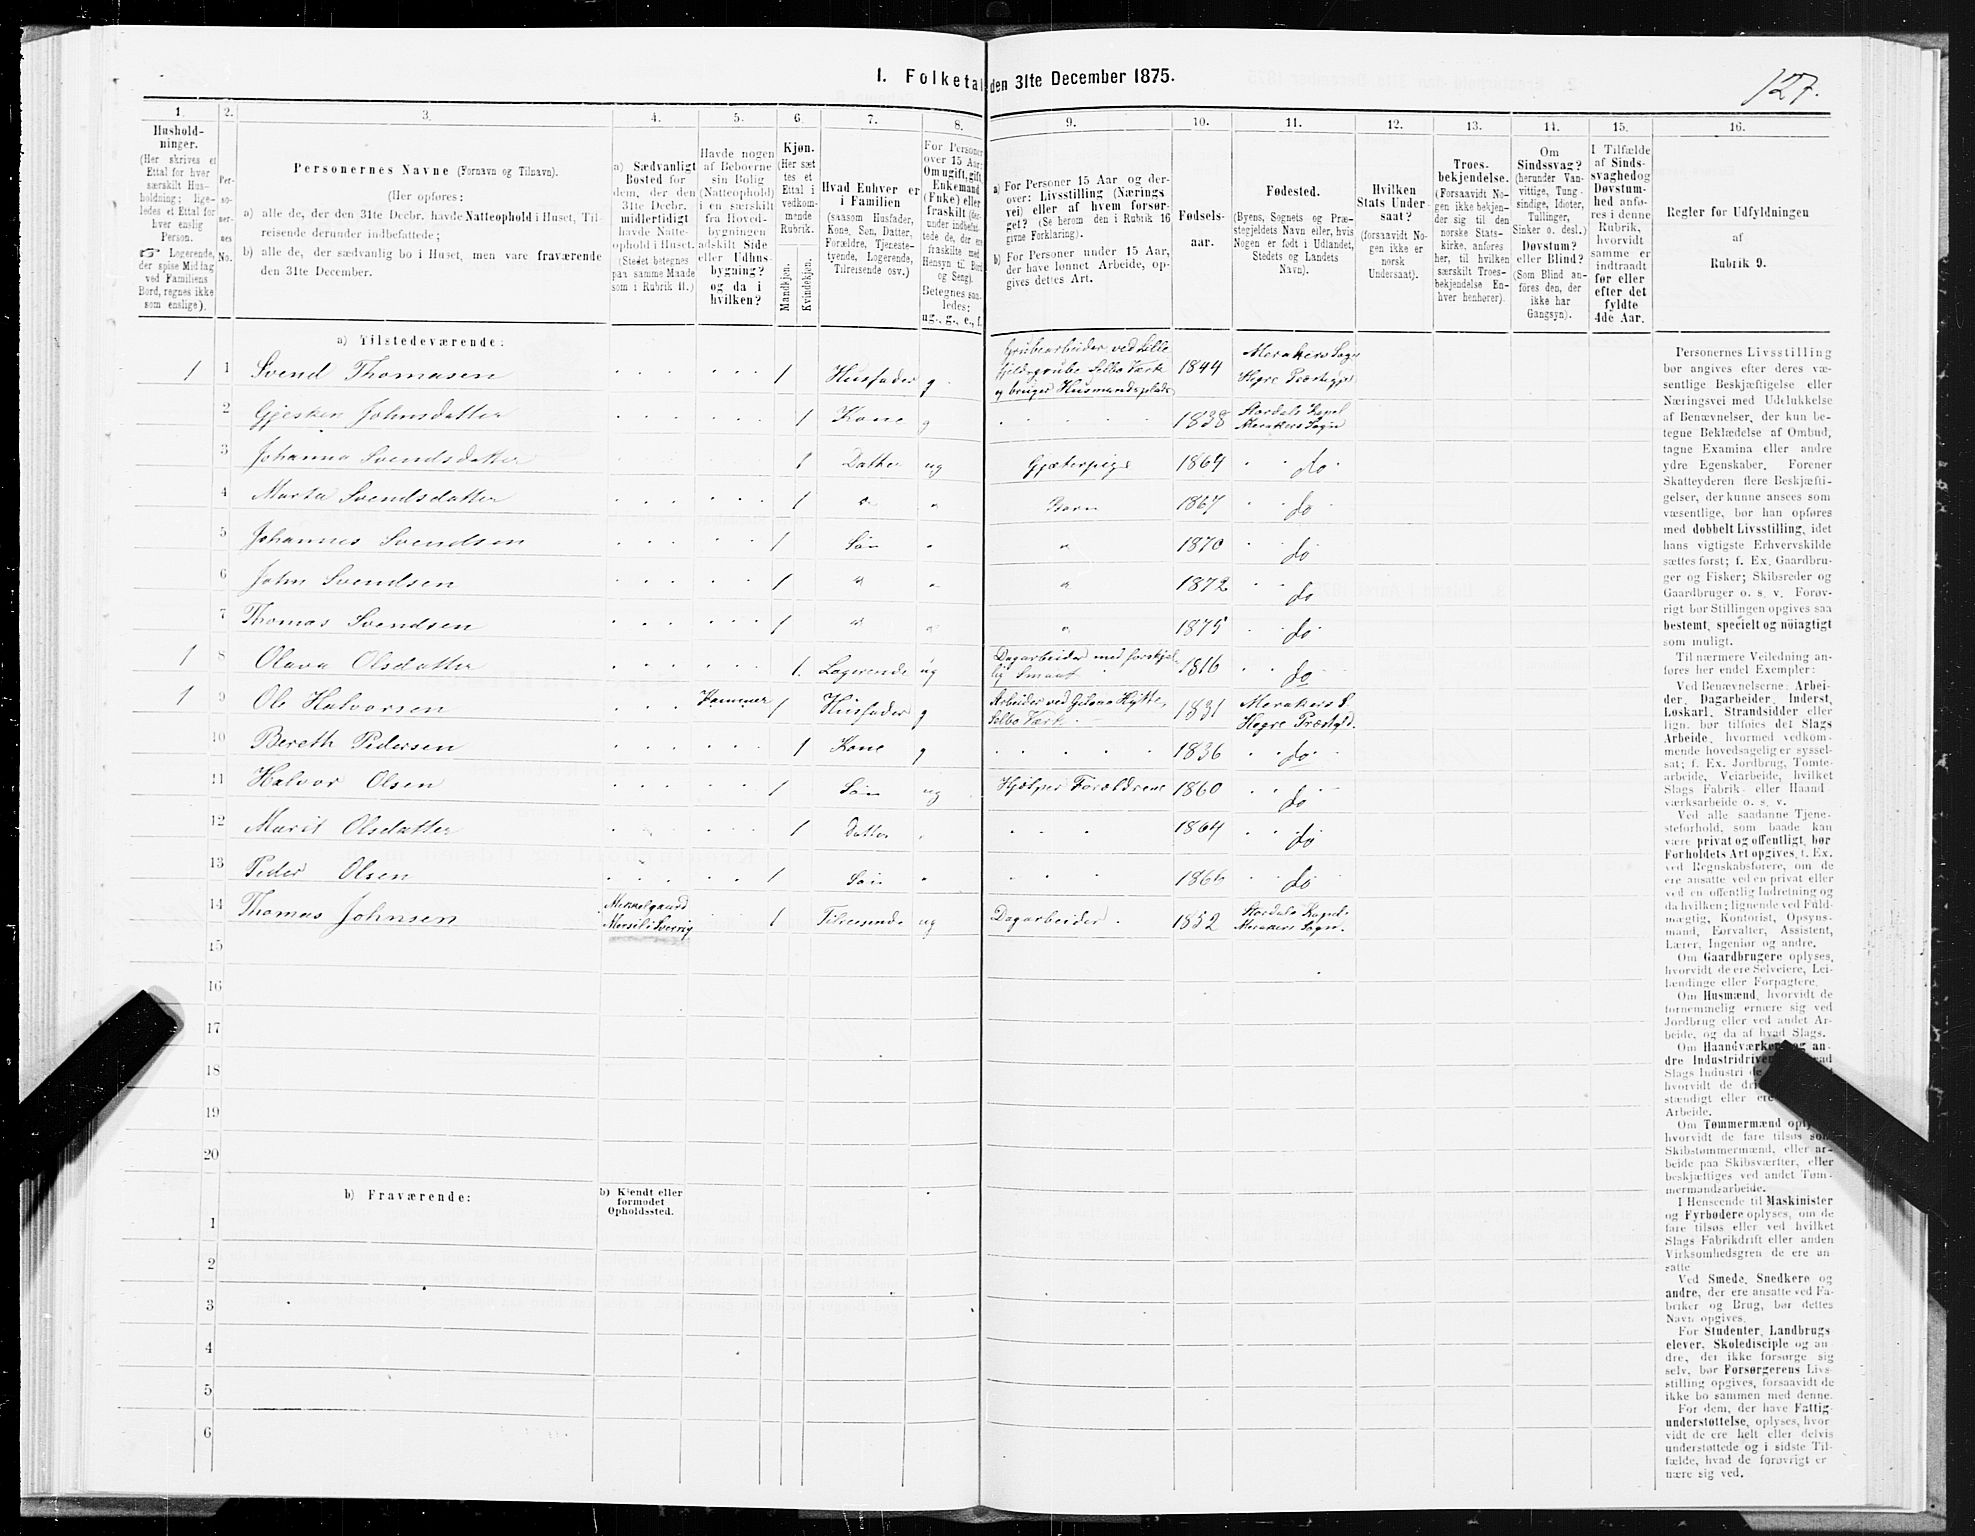 1. Folketal den 31te December 1875.
127.
1. 2. 3. 4. 5. 6. 7. 8. 9. 10. 11. 12. 13. 14. 15. 16.
Hushold-
ninger.
(Her skrives et
Ettal for hver
særskilt Hus-
holdning; lige-
ledes et Ettal for
hver enslig
Person.
☞ Logerende,
der spise Middag
ved Familiens
Bord, regnes ikke
som enslige).
Per-
so-
ner-
nes
No.
Personernes Navne (Fornavn og Tilnavn).
(Her opføres:
a) alle de, der den 31te Decbr. havde Natteophold i Huset, Til-
reisende derunder indbefattede;
b) alle de, der sædvanlig bo i Huset, men vare fraværende
den 31te December.
a) Sædvanligt
Bosted for
dem, der den
31te Decbr.
midlertidigt
havde Natte-
ophold i Huset.
(Stedet betegnes
paa samme Maade
som i Rubrik 11.)
Havde nogen
af Beboerne
sin Bolig
(Natteophold)
i en særskilt
fra Hoved-
bygningen
adskilt Side
eller Udhus-
bygning?
og da i
hvilken?
Kjøn.
(Her sæt
tes et
Ettal i
vedkom-
mende
Rubrik.
Mandkjøn.
Kvindekjøn.
Hvad Enhver er
i Familien
(saasom Husfader,
Kone, Søn, Datter,
Forældre, Tjeneste-
tyende, Logerende,
Tilreisende osv.)
For Personer
over 15 Aar:
Om ugift, gift,
Enkemand
(Enke) eller
fraskilt (der-
under indbefat-
tede de, der ere
fraskilte med
Hensyn til Bord
og Seng).
Betegnes saa-
ledes:
ug., g., e., f.
a) For Personer 15 Aar og der-
over: Livsstilling (Nærings
vei) eller af hvem forsør-
get? (Se herom den i Rubrik 16
givne Forklaring).
b) For Personer under 15 Aar,
der have lønnet Arbeide, op-
gives dettes Art.
Fødsels-
aar.
Fødested.
(Byens, Sognets og Præ-
stegjeldets Navn eller, hvis
Nogen er født i Udlandet,
Stedets og Landets
Navn).
Hvilken
Stats Under-
saat?
(forsaavidt No-
gen ikke er
norsk
Undersaat).
Troes-
bekjendelse.
(Forsaavidt No-
gen ikke bekjen-
der sig til den
norske Stats-
kirke, anføres
her, til hvilken
særskilt Troes-
bekjendelse En-
hver henhører).
Om
Sindssvag?
(herunder Van-
vittige, Tung-
sindige, Idioter,
Tullinger,
Sinker o. desl.)
Døvstum?
eller Blind?
(Som Blind an-
føres den, der
ikke har
Gangsyn).
I Tilfælde
af Sinds-
svaghed og
Døvstum-
hed anfø-
res i denne
Rubrik,
hvorvidt
samme er
indtraadt
før eller
efter det
fyldte
4de Aar.
Regler for Udfyldningen
af
Rubrik 9.
a) Tilstedeværende:
1 1 Svend Thomasen 1 Husfader g. Grubearbeider ved Lille
Fjeldsgrube Selbo Værk
og bruger Husmandsplads 1844 Merakers Sogn
Hegre Præstegje
2 Gjesken Johnsdatter 1 Kone g 1838 Stordals Kapel
Merakers Sogn
3 Johanna Svendsdatter 1 Datter ug Gjæterpige 1864 do
4 Marta Svendsdatter 1 " " Barn 1867 do
5 Johannes Svendsen 1 Søn " " 1870 do
6 John Svendsen 1 " " " 1872 do
7 Thomas Svendsen 1 " " " 1875 do
1 8 Olava Olsdatter 1. Logerende ug Dagarbeider med forskjel-
lig Smaat 1816 do
1 9 Ole Halvorsen Kammer 1 Husfader g Arbeider ved Gilsaa Hytte,
Selbo Værk 1831 Merakers S.
Hegre Præstgd.
10 Bereth Pedersen 1 Kone g 1836 do
11 Halvor Olsen 1 Søn ug Hjælper Forældrene 1860 do
12 Marit Olsdatter 1 Datter 1864 do
13 Peder Olsen 1 Søn " 1866 do
14 Thomas Johnsen Mikkelgaard
Mersil i Sverrig 1 Tilreisende ug Dagarbeider. 1852 Stordals Kapel
Merakers Sogn.
15
16
17
18
19
20
b) Fraværende:
b) Kjendt eller
formodet
Opholdssted.
1
2
3
4
5
6
Personernes Livsstilling
bør angives efter deres væ-
sentlige Beskjæftigelse eller
Næringsvei med Udelukkelse
af Benævnelser, der kun be-
tegne Beklædelse af Ombud,
tagne Examina eller andre
ydre Egenskaber. Forener
Skatteyderen flere Beskjæfti-
gelser, der kunne ansees som
væsentlige, bør han opføres
med dobbelt Livsstilling, idet
hans vigtigste Erhvervskilde
sættes først; f. Ex. Gaardbru-
ger og Fisker; Skibsreder og
Gaardbruger o. s. v. Forøv-
rigt bør Stillingen opgives saa
bestemt, specielt og nøiagtigt
som muligt.
Til nærmere Veiledning an-
føres her endel Exempler:
Ved Benævnelserne: Arbei-
der, Dagarbeider, Inderst,
Løskarl, Strandsidder eller
lign. bør tilføies det Slags
Arbeide, hvormed vedkom-
mende hovedsagelig er syssel-
sat; f. Ex. Jordbrug, Tomte-
arbeide, Veiarbeide, hvilket
Slags Fabrik- eller Haand
værksarbeide o. s. v.
Ved alle saadanne Tjene-
steforhold, som baade kan
være privat og offentligt, bør
Forholdets Art opgives, f. Ex.
ved Regnskabsførere, om de
ere ansatte ved en privat eller
ved en offentlig Indretning og
da hvilken; lignende ved Fuld-
mægtig, Kontorist, Opsyns-
mand, Forvalter, Assistent,
Lærer, Ingeniør og andre.
Om Gaardbrugere oplyses,
hvorvidt de ere Selveiere, Lei-
lændinge eller Forpagtere.
Om Husmænd, hvorvidt de
fornemmelig ernære sig ved
Jordbrug eller ved andet Ar-
beide, og da af hvad Slags.
Om Haandværkere og an-
dre Industridrivende
Slags Industri
hvorvidt de
stændigt eller ere
Arbeide.
Om Tømmermænd oplyses
hvorvidt de fare tilsøs som
Skibstømmermænd, eller ar-
beide paa Skibsværfter, eller
beskjæftiges ved andet Tøm-
mermandsarbeide.
I Henseende til Maskinister
og Fyrbødere oplyses, om de
fare tilsøs eller ved hvilket
Slags Fabrikdrift eller anden
Virksomhedsgren de ere an-
satte
Ved Smede, Snedkere og
andre, der ere ansatte ved Fa-
briker og Brug, bør dettes
Navn opgives.
For Studenter, Landbrugs
elever, Skoledisciple og an
dre, der ikke forsørge sig
selv, bør Forsørgerens Livs-
stilling opgives, forsaavidt de
ikke bo sammen med denne.
For dem, der have Fattig-
understøttelse, oplyses, hvor
vidt de ere helt eller delvis
understøttede og i sidste Til-
fælde, hvad de forøvrigt er
nære sig ved.